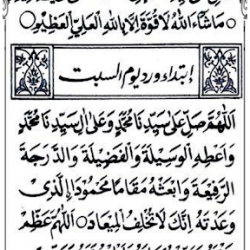 مَاشَآءَ اللّٰهُ لَا قُوَّةَ اِلَّا بِاللّٰهِ الْعَلِيِّ الْعَظِيْمِ
اِبتداء ورد يوم السبت
اَللّٰهُمَّ صَلِّ عَلٰى سَيِّدِنَا مُحَمَّدٍ وَعَلٰى اٰلِ سَيِّدِنَا مُحَمَّدٍ
وَاَعْطِهِ الْوَسِيْلَةَ وَالْفَضِيْلَةَ وَالدَّرَجَةَ
الرَّفِيْعَةَ وَابْعَثْهُ مَقَامًا مَّحْمُوْدًا اِلَّذِيْ
وَعَدْتَهُ اِنَّكَ لَا تُخْلِفُ الْمِيْعَادَ اَللّٰهُمَّ عَظِّمْ